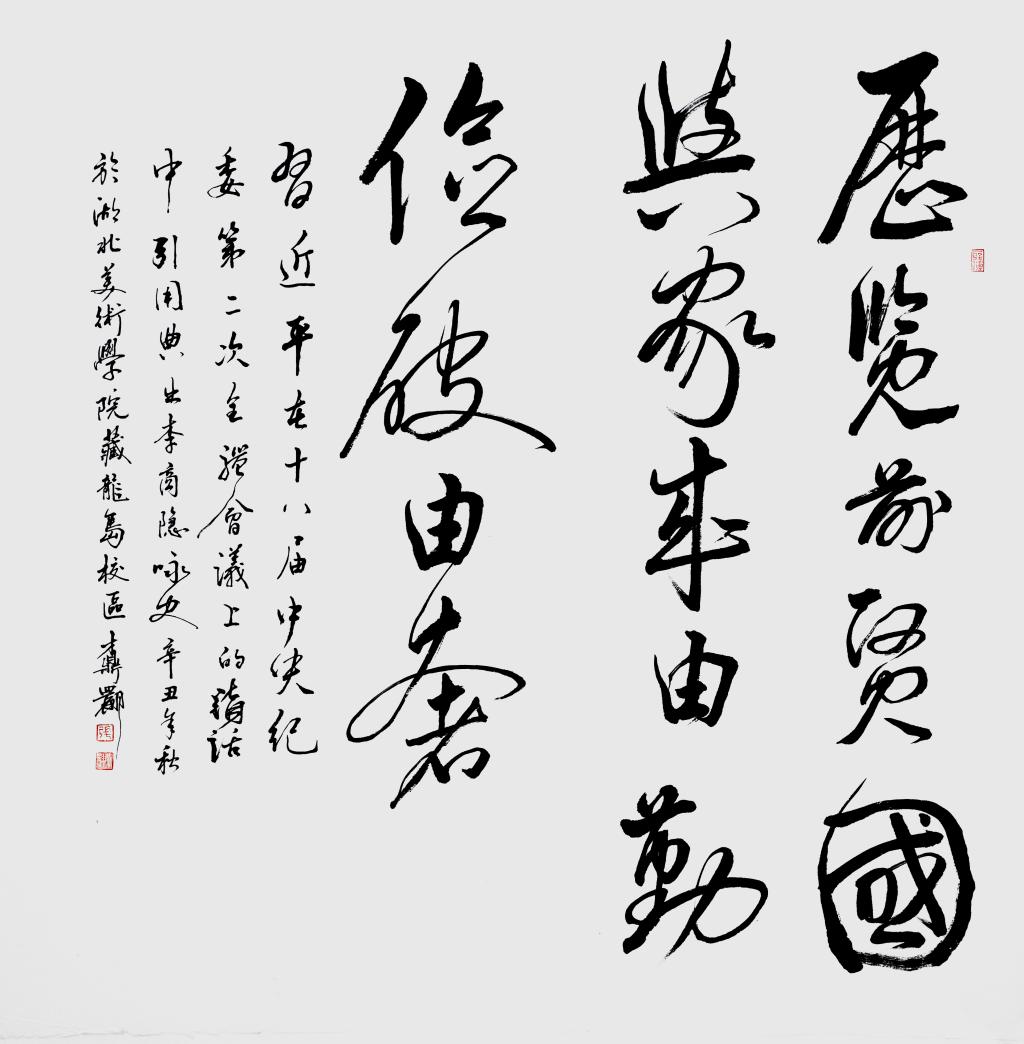 歷覽前賢國
與家成由勤
儉破由奢
習近平在十八届中央紀
委第二次全體會議上的講話
中引用典出李商隐咏史辛丑年秋
於湖北美術學院藏龍島校區